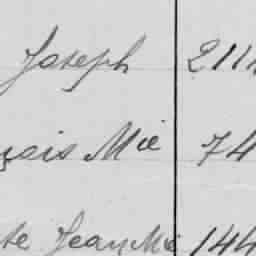 Joseph 211
çois Mie 74
te Jean Mie 144